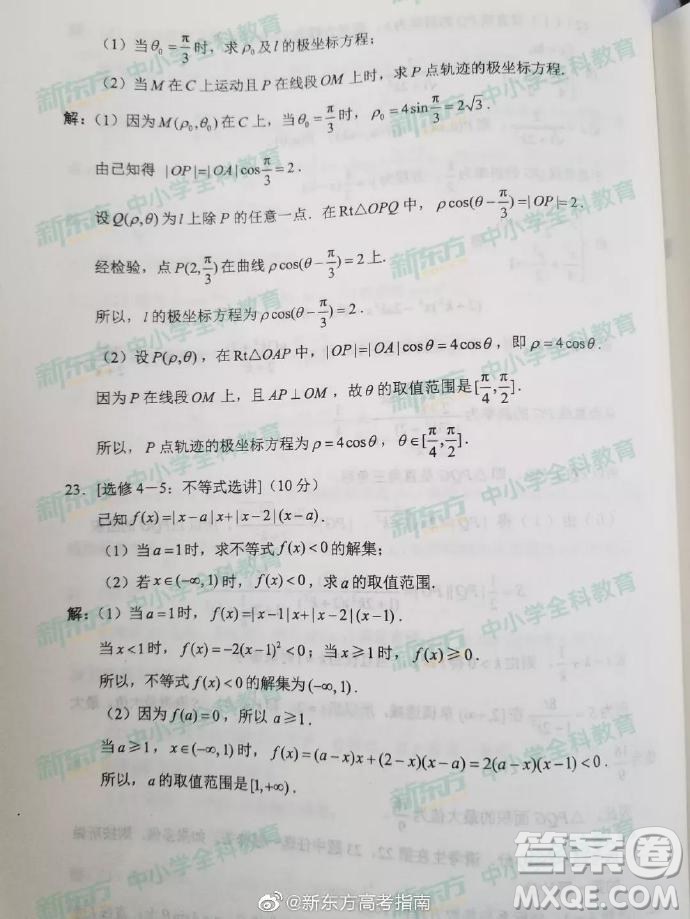 (1)当θ₀=π/3时，求ρ₀及l的极坐标方程；
(2)当M在C上运动且P在线段OM上时，求P点轨迹的极坐标方程.
解：(1)因为M(ρ₀,θ₀)在C上，当θ₀=π/3时，ρ₀=4sin π/3=2√3.
由已知得 |OP|=|OA|cos π/3=2.
设Q(ρ,θ)为l上除P的任意一点．在Rt△OPQ中，ρcos(θ-π/3)=|OP|=2.
经检验，点P(2,π/3)在曲线ρcos(θ-π/3)=2上.
所以，l的极坐标方程为ρcos(θ-π/3)=2.
(2)设P(ρ,θ)，在Rt△OAP中，|OP|=|OA|cosθ=4cosθ，即ρ=4cosθ.
因为P在线段OM上，且AP⊥OM，故θ的取值范围是[π/4,π/2].
所以，P点轨迹的极坐标方程为ρ=4cosθ，θ∈[π/4,π/2].
23．[选修4－5：不等式选讲](10分)
已知f(x)=|x-a|x+|x-2|(x-a).
(1)当a=1时，求不等式f(x)<0的解集；
(2)若x∈(-∞,1)时，f(x)<0，求a的取值范围.
解：(1)当a=1时，f(x)=|x-1|x+|x-2|(x-1).
当x<1时，f(x)=-2(x-1)²<0；当x≥1时，f(x)≥0.
所以，不等式f(x)<0的解集为(-∞,1).
(2)因为f(a)=0，所以a≥1.
当a≥1，x∈(-∞,1)时，f(x)=(a-x)x+(2-x)(x-a)=2(a-x)(x-1)<0.
所以，a的取值范围是[1,+∞).
新东方 中小学全科教育
答案卷
MXQE.COM
@新东方高考指南